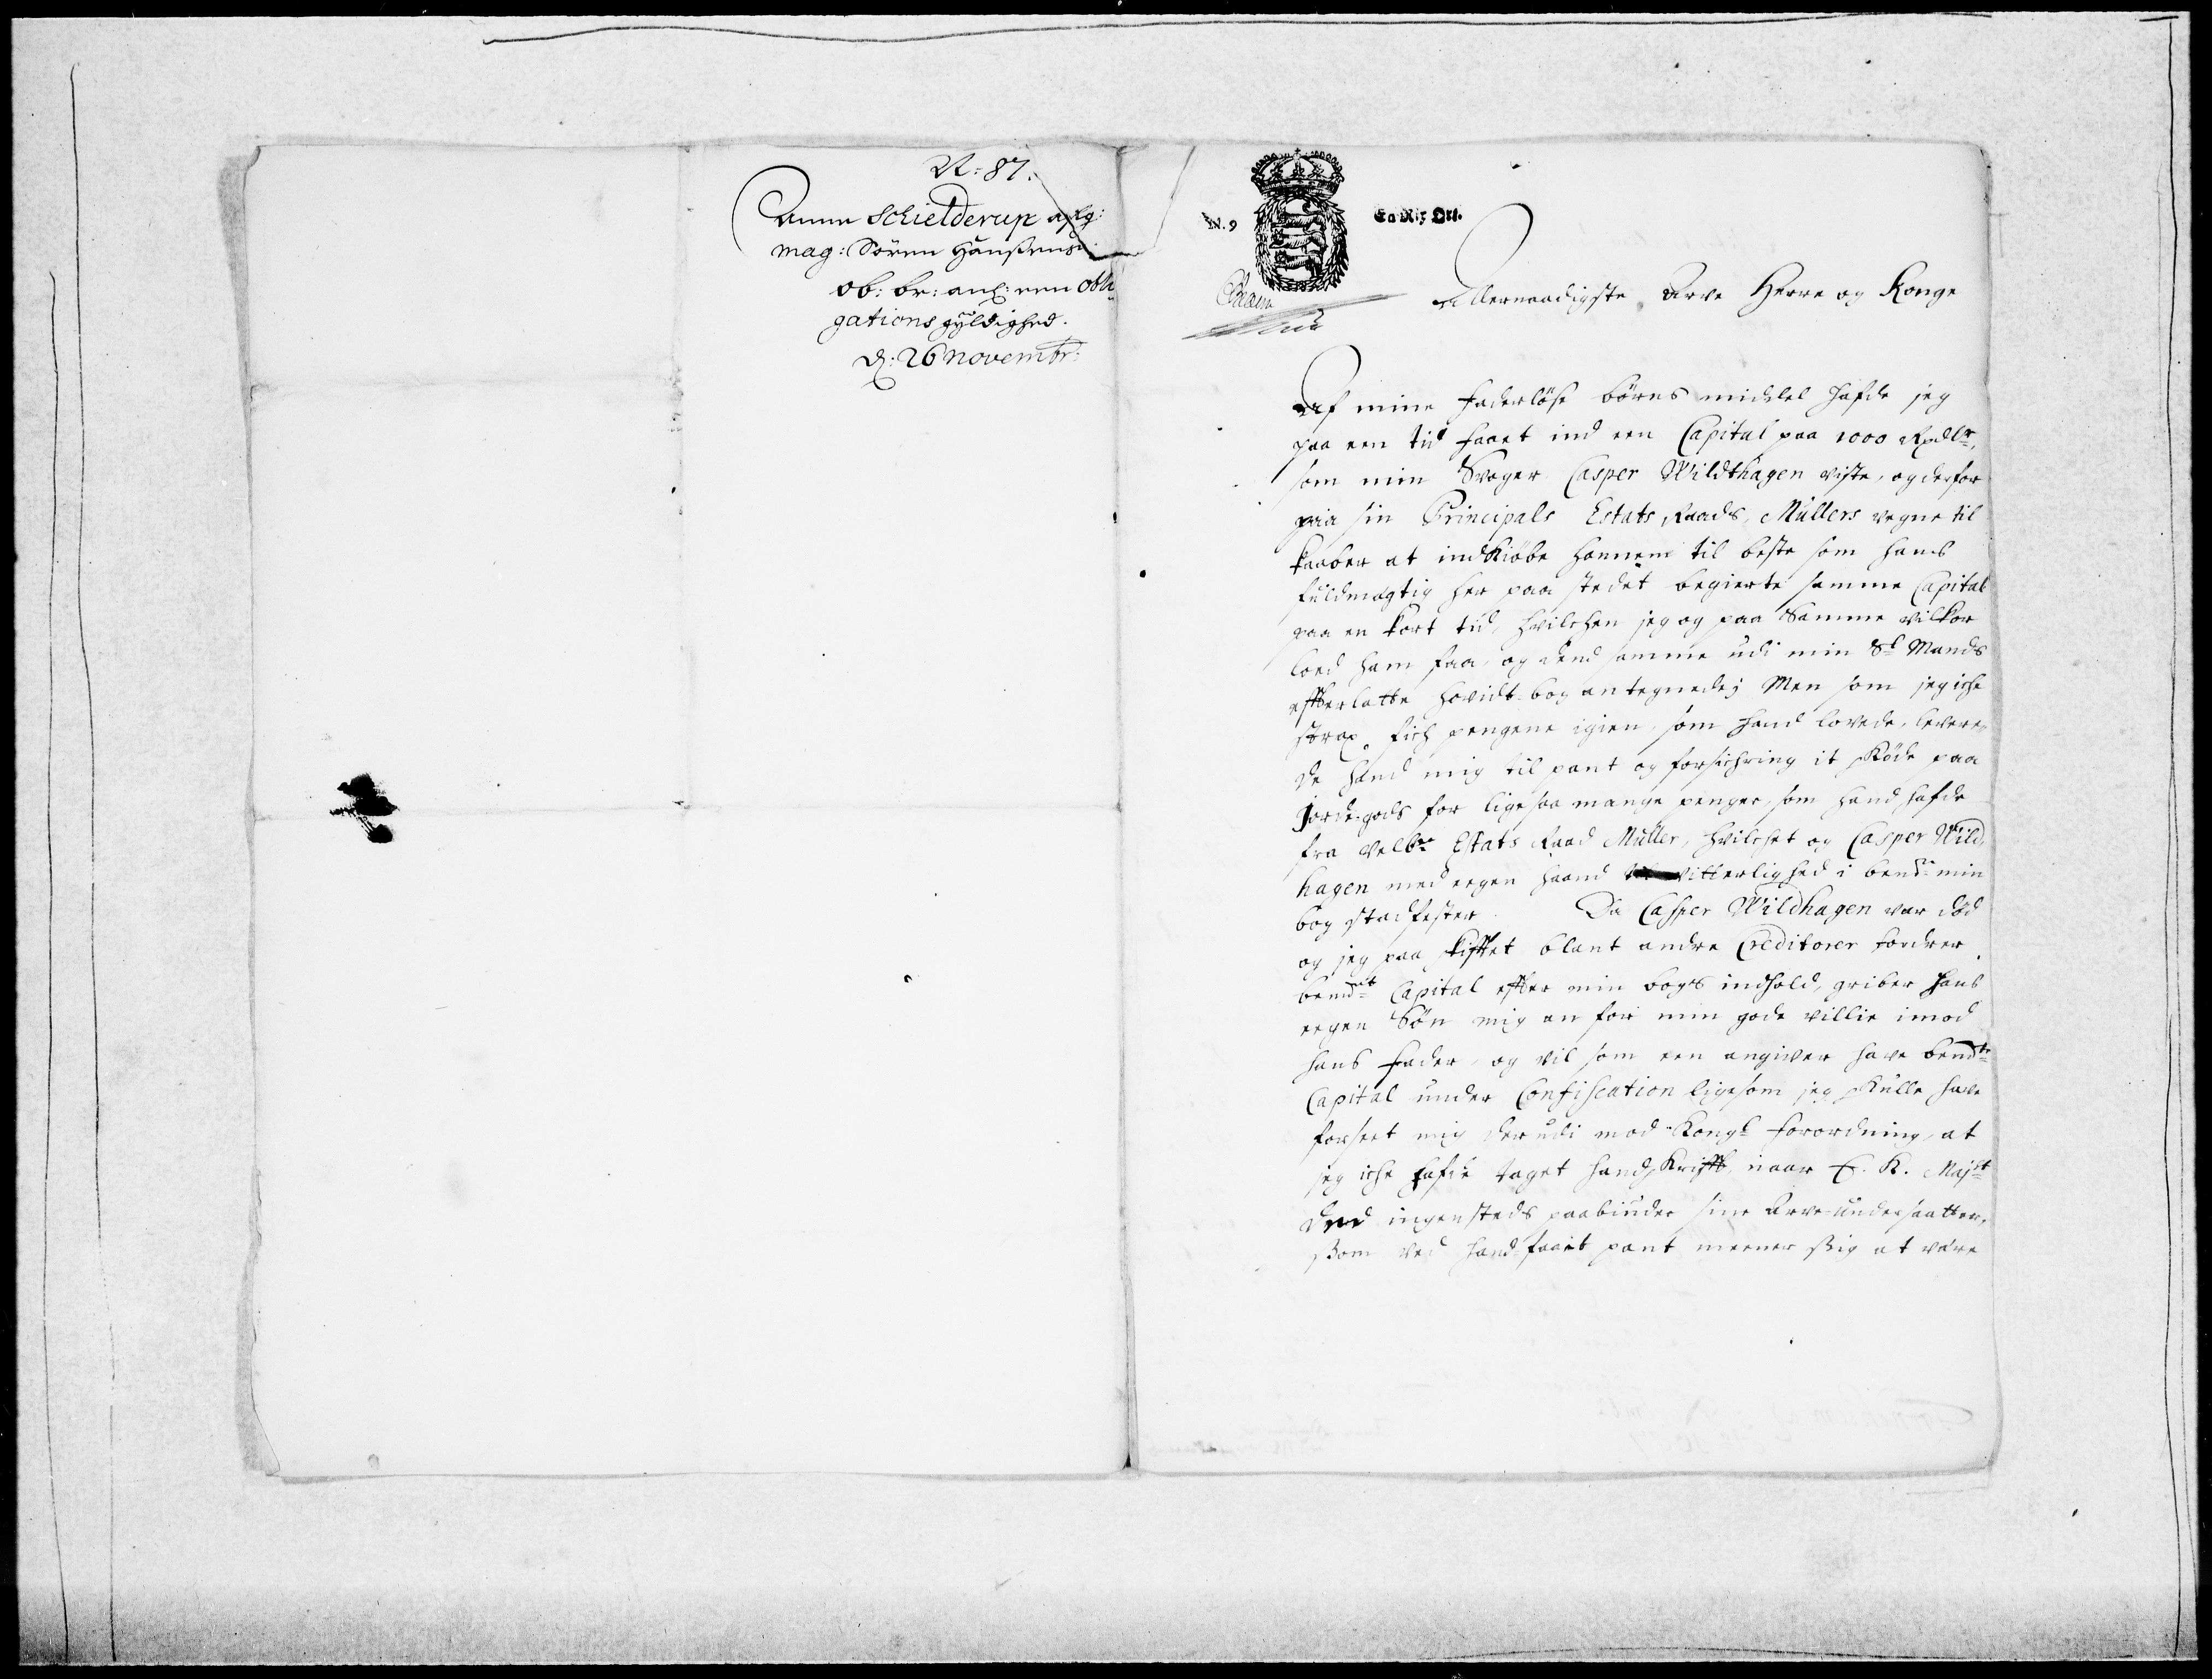 N: 87.
Anna Schielderup afg:
mag: Sören Hansens
ob: br: anl: een obli
gations gyldighed.
d: 26 novembr:
N. 9
En Rix Ort.
Allernaadigste Arve Herre og Konge
Af mine faderlöse börns middel hafde jeg
paa een tid faaet ind een Capital paa 1000 Rxdlr,
som min Svoger Casper Wildthagen viste, og derfor
paa sin Principals Estats Raads, Müllers vegne til
kaaber at indkiöbe hannem til beste som hans
fuldmegtig her paa stedet begierte samme Capital
paa en kort tid, hvilchen jeg og paa Samme vilkor
loed ham faa, og dend samme udi min Sl Mands
effterlatte hovidt-bog antegnede; Men som jeg iche
strax fich pengene igien, som hand lovede, levere-
de hand mig til pant og forsichring it sköde paa
jorde-gods for ligesaa mange penger, som hand hafde
fra velbr Estats Raad Müller, hvilchet og Casper Wild,
hagen med eegen haand vitterlighed i bend: min
bog stadfester. Da Casper Wildhagen var död
og jeg paa skifftet blant andre Creditorer fordrer
bemdt Capital effter min bogs indhold, griber hans
eegen Sön mig an for min gode villie imod
hans fader, og vil som een angiver have bemdte
Capital under Confiscation ligesom jeg skulle have
forseet mig derudi mod Kongl forordning, at
jeg iche hafde taget handskrifft, naar E. K. Majst
dend ingensteds paabinder sine Arve-undersaatter,
som ved hand-faaet pant meener sig at være